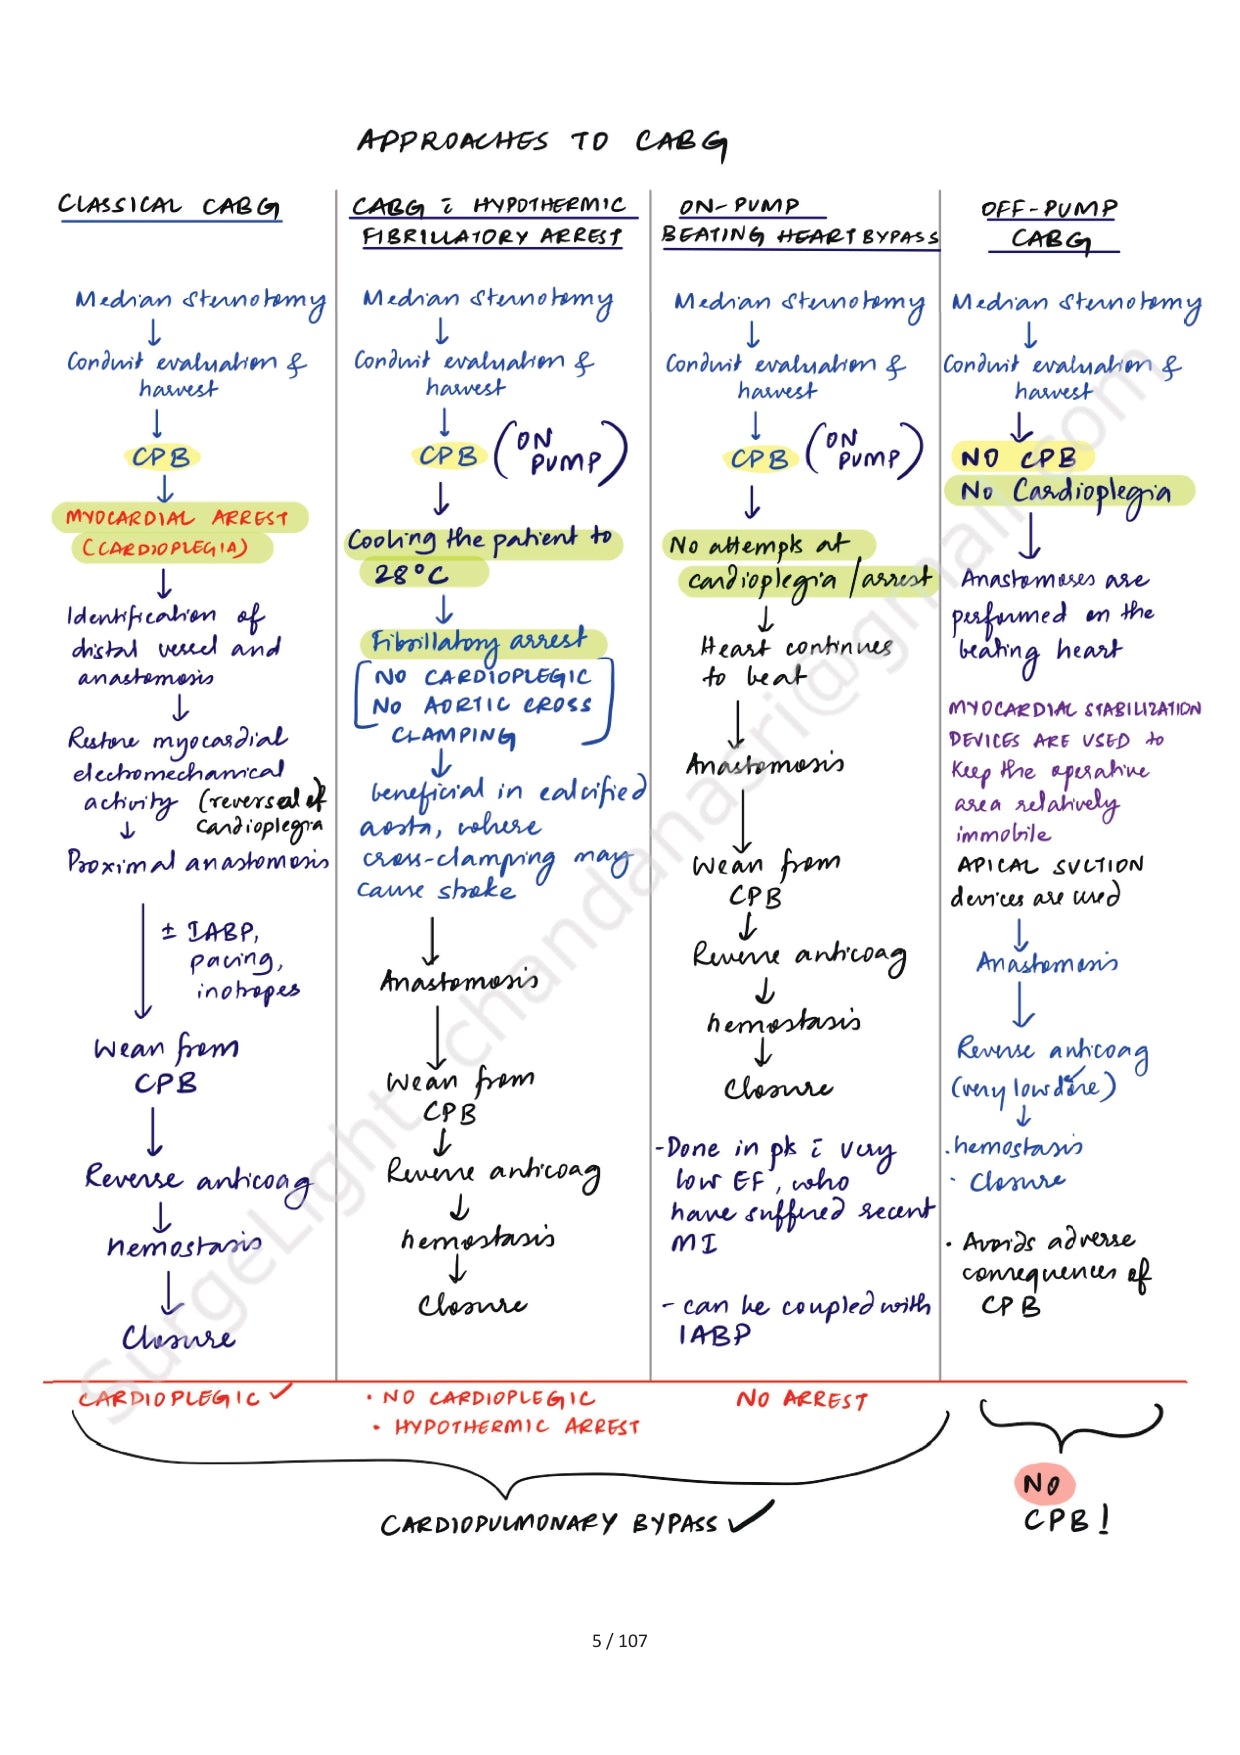 APPROACHES TO CABG
CLASSICAL CABG
Median Sternotomy
↓
Conduit evaluation &
harvest
↓
CPB
↓
MYOCARDIAL ARREST
(CARDIOPLEGIA)
↓
Identification of
distal vessel and
anastomosis
↓
Restore myocardial
electromechanical
activity (reversal of
cardioplegia
↓
Proximal anastomosis
↓ ± IABP,
pacing,
inotropes
Wean from
CPB
↓
Reverse anticoag
↓
hemostasis
↓
Closure
CARDIOPLEGIC ✓
CABG c̄ HYPOTHERMIC
FIBRILLATORY ARREST
Median Sternotomy
↓
Conduit evaluation &
harvest
↓
CPB (ON
PUMP)
↓
Cooling the patient to
28°C
↓
Fibrillatory arrest
[NO CARDIOPLEGIC
NO AORTIC CROSS
CLAMPING]
↓
beneficial in calcified
aorta, where
cross-clamping may
cause stroke
↓
Anastomosis
↓
Wean from
CPB
↓
Reverse anticoag
↓
hemostasis
↓
Closure
• NO CARDIOPLEGIC
• HYPOTHERMIC ARREST
ON-PUMP
BEATING HEART BYPASS
Median Sternotomy
↓
Conduit evaluation &
harvest
↓
CPB (ON
PUMP)
↓
No attempts at
cardioplegia/arrest
↓
Heart continues
to beat
↓
Anastomosis
↓
Wean from
CPB
↓
Reverse anticoag
↓
hemostasis
↓
Closure
- Done in pts c̄ very
low EF, who
have suffered recent
MI
- can be coupled with
IABP
NO ARREST
OFF-PUMP
CABG
Median Sternotomy
↓
Conduit evaluation &
harvest
↓
NO CPB
No Cardioplegia
↓
Anastomoses are
performed on the
beating heart
MYOCARDIAL STABILIZATION
DEVICES ARE USED to
Keep the operative
area relatively
immobile
APICAL SUCTION
devices are used
↓
Anastomosis
↓
Reverse anticoag
(very low dose)
↓
• hemostasis
• Closure
• Avoids adverse
consequences of
CPB
CARDIOPULMONARY BYPASS ✓
NO
CPB!
5 / 107